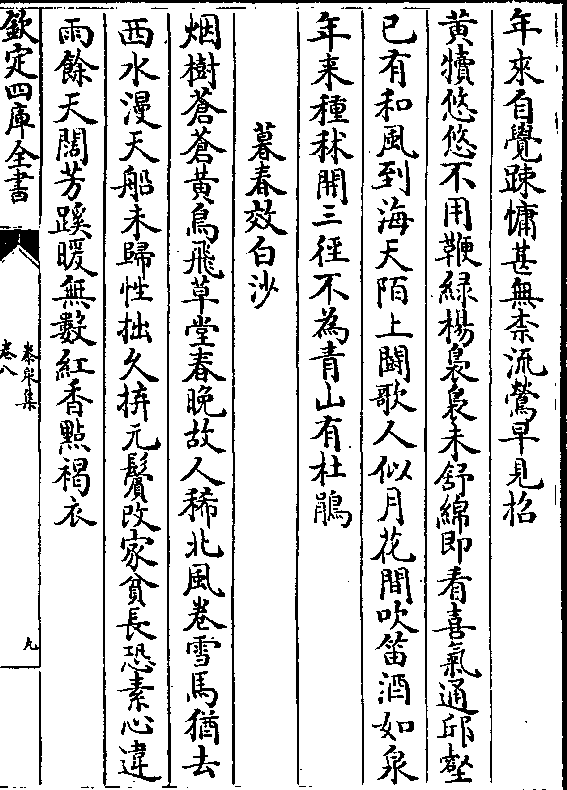 年來自覺踈慵甚無柰流鶯早見招
黃犢悠悠不用鞭緑楊裊裊未舒綿即看喜氣通邱壑
已有和風到海天陌上鬭歌人似月花間吹笛酒如泉
年来種秫開三徑不為青山有杜鵑
暮春效白沙
烟樹蒼蒼黃鳥飛草堂春晚故人稀北風卷雪馬猶去
西水漫天船未歸性拙久拚元鬢改家貧長恐素心違
雨餘天闊芳蹊暖無數紅香點褐衣
欽定四庫全書
泰泉集
卷八
九